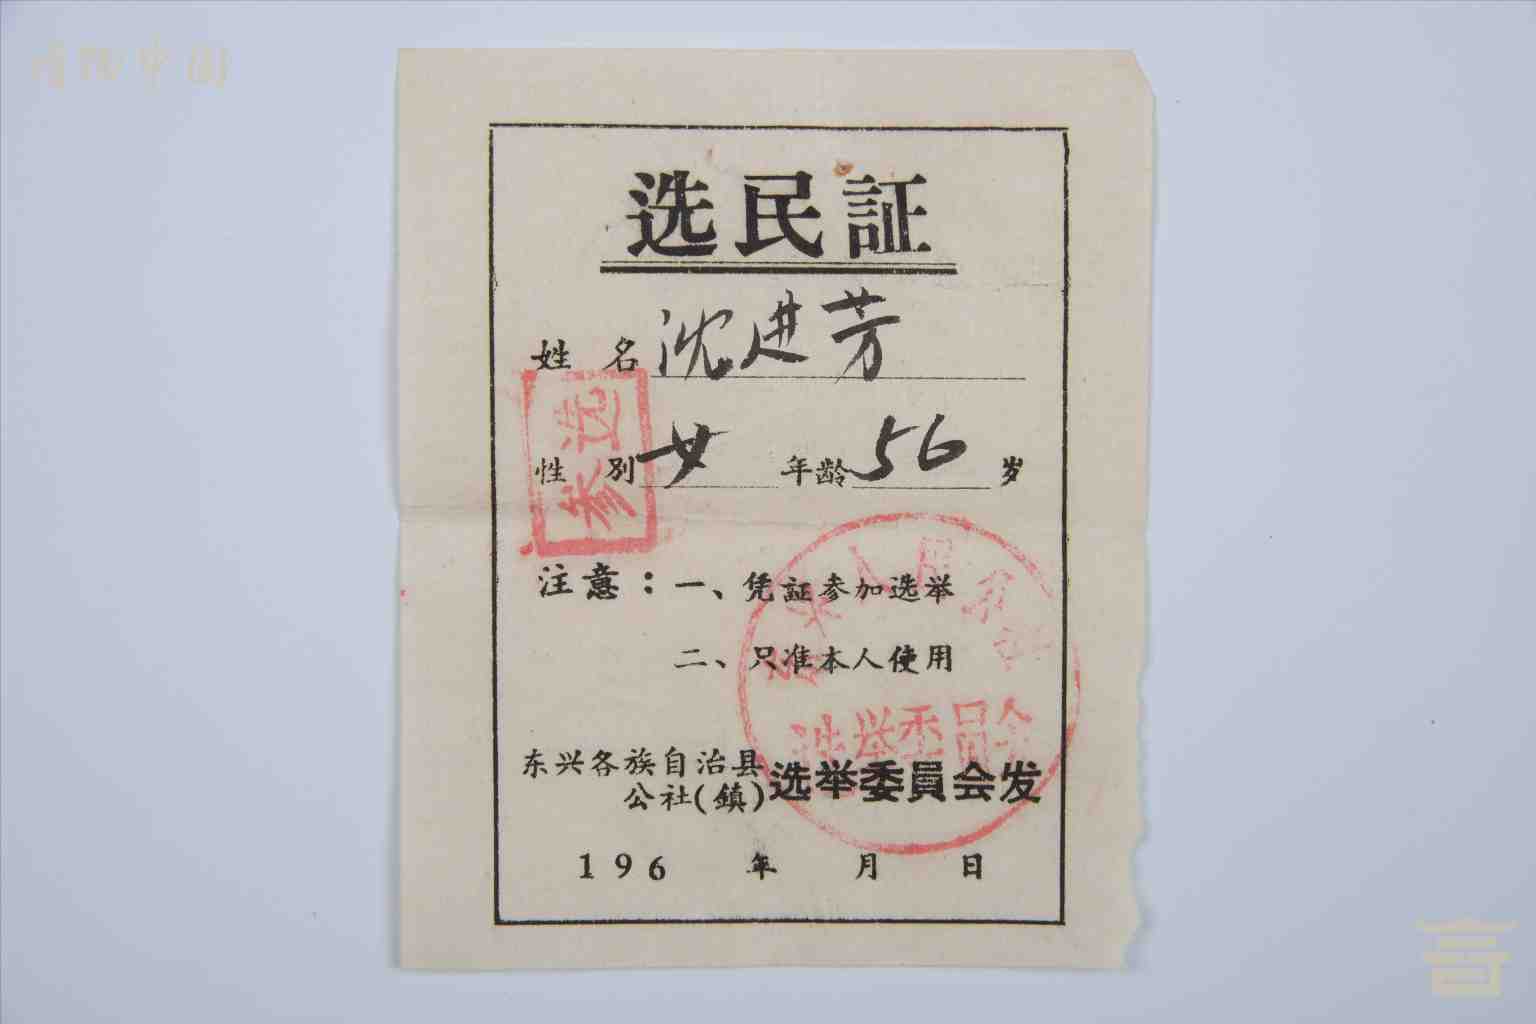 选民証
姓名 沈进芳
性别 女 年龄 56 岁
参选
注意：一、凭証参加选举
二、只准本人使用
人民公社
选举委员会
东兴各族自治县
公社(鎮)选举委員会发
196 年 月 日